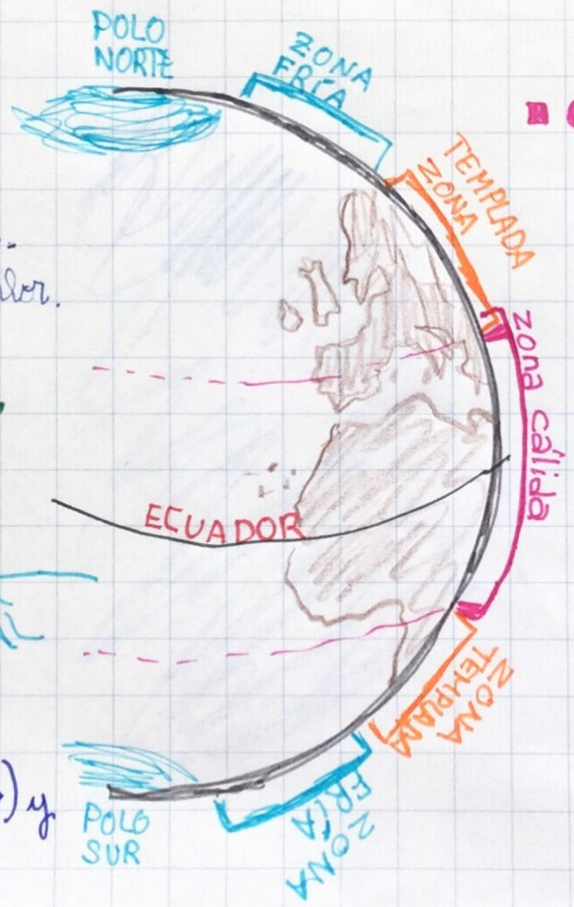 POLO
NORTE
ZONA
FRÍA
ZONA
TEMPLADA
zona cálida
ECUADOR
ZONA
TEMPLADA
) y
ZONA
FRÍA
POLO
SUR